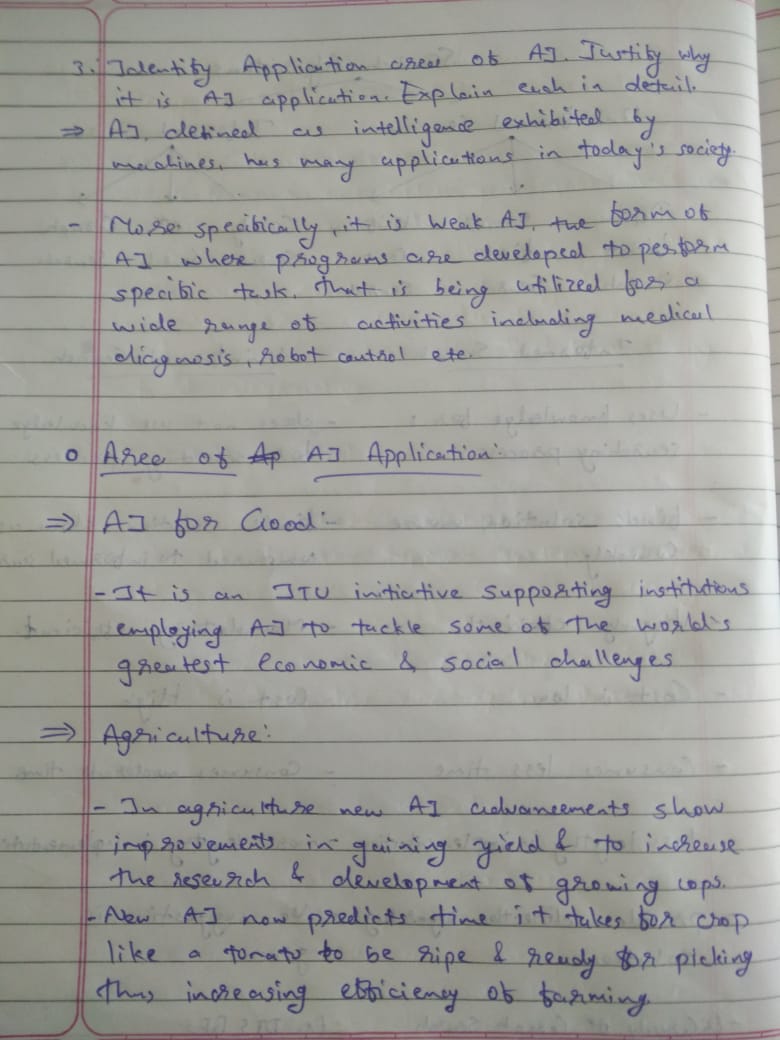 3. Identify Application areas of AI. Justify why
it is AI application. Explain each in detail.
⇒ AI, defined as intelligence exhibited by
machines, has many applications in today's society.
- More specifically, it is weak AI, the form of
AI where programs are developed to perform
specific task, that is being utilized for a
wide range of activities including medical
diagnosis, robot control etc.
o Area of Ap AI Application:-
⇒ AI for Good:-
- It is an ITU initiative supporting institutions
employing AI to tackle some of the world's
greatest economic & social challenges
⇒ Agriculture:
- In agriculture new AI advancements show
improvements in gaining yield & to increase
the research & development of growing cops.
- New AI now predicts time it takes for crop
like a tomato to be ripe & ready for picking
thus increasing efficiency of farming.